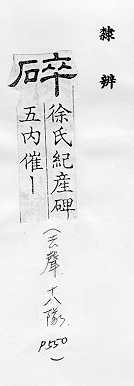 隸辨
碎
徐氏紀産碑
五内催｜
(去聲 十八隊.
P550)